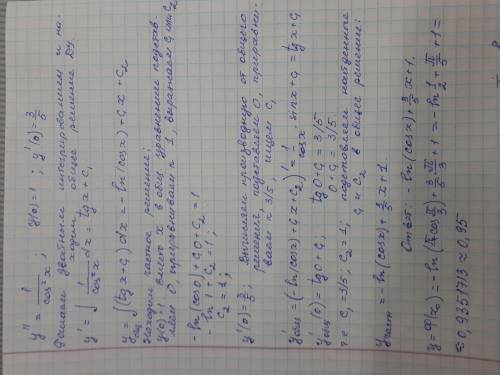 y'' = 1/cos²x ; y(0)=1 ; y'(0)=3/5
Решаем двойным интегрированием и на-
ходим общее решение ДУ.
y' = ∫ 1/cos²x dx = tg x + C₁
y общ = ∫(tg x + C₁) dx = -ln(cos x) + C₁x + C₂
Находим частное решение:
y(0)=1 вместо x в общ уравнение подстав-
ляем 0, приравниваем к 1, выражаем C₁ или C₂
-ln(cos 0) + C₁·0 + C₂ = 1
-ln 1 + C₂ = 1;
C₂ = 1;
y'(0) = 3/5; Вычисляем производную от общего
решения, подставляем 0, приравни-
ваем к 3/5, ищем C₁
y' общ = (-ln(cos x) + C₁x + C₂)' = 1/cos x · sin x + C₁ = tg x + C₁
y' общ (0) = tg 0 + C₁ tg 0 + C₁ = 3/5
0 + C₁ = 3/5
т.е C₁ = 3/5, C₂ = 1; подставляем найденные
C₁ и C₂ в общее решение:
y част = -ln(cos x) + 3/5 x + 1.
Ответ: -ln(cos x) + 3/5 x + 1.
≈ 0,9351713 ≈ 0,95